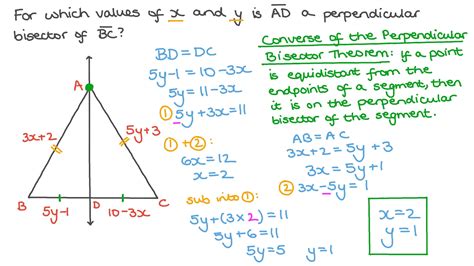 For which values of x and y is AD a perpendicular
bisector of BC?
A
3x+2
5y+3
B
5y-1
D
10-3x
C
BD=DC
5y-1=10-3x
5y=11-3x
① 5y+3x=11
①+②:
6x=12
x=2
sub into ①:
5y+(3×2)=11
5y+6=11
5y=5 y=1
Converse of the Perpendicular
Bisector Theorem: if a point
is equidistant from the
endpoints of a segment, then
it is on the perpendicular
bisector of the segment.
AB=AC
3x+2=5y+3
3x=5y+1
② 3x-5y=1
x=2
y=1